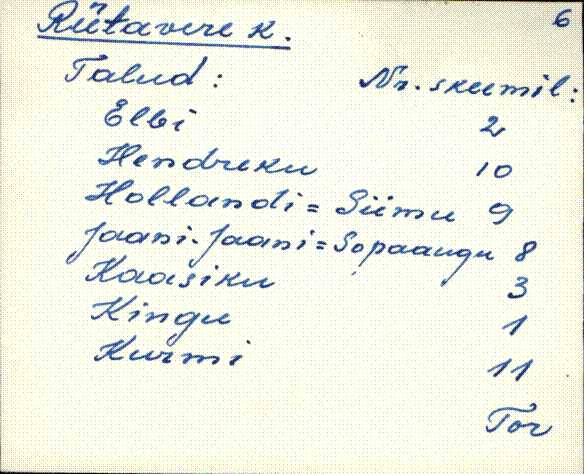 Rütavere k. 6
Talud: Nr. skeemil:
Elbi 2
Hendreku 10
Hollandi = Siimu 9
Jaani-Jaani = Sopaaugu 8
Kaasiku 3
Kingu 1
Kurmi 11
Tor